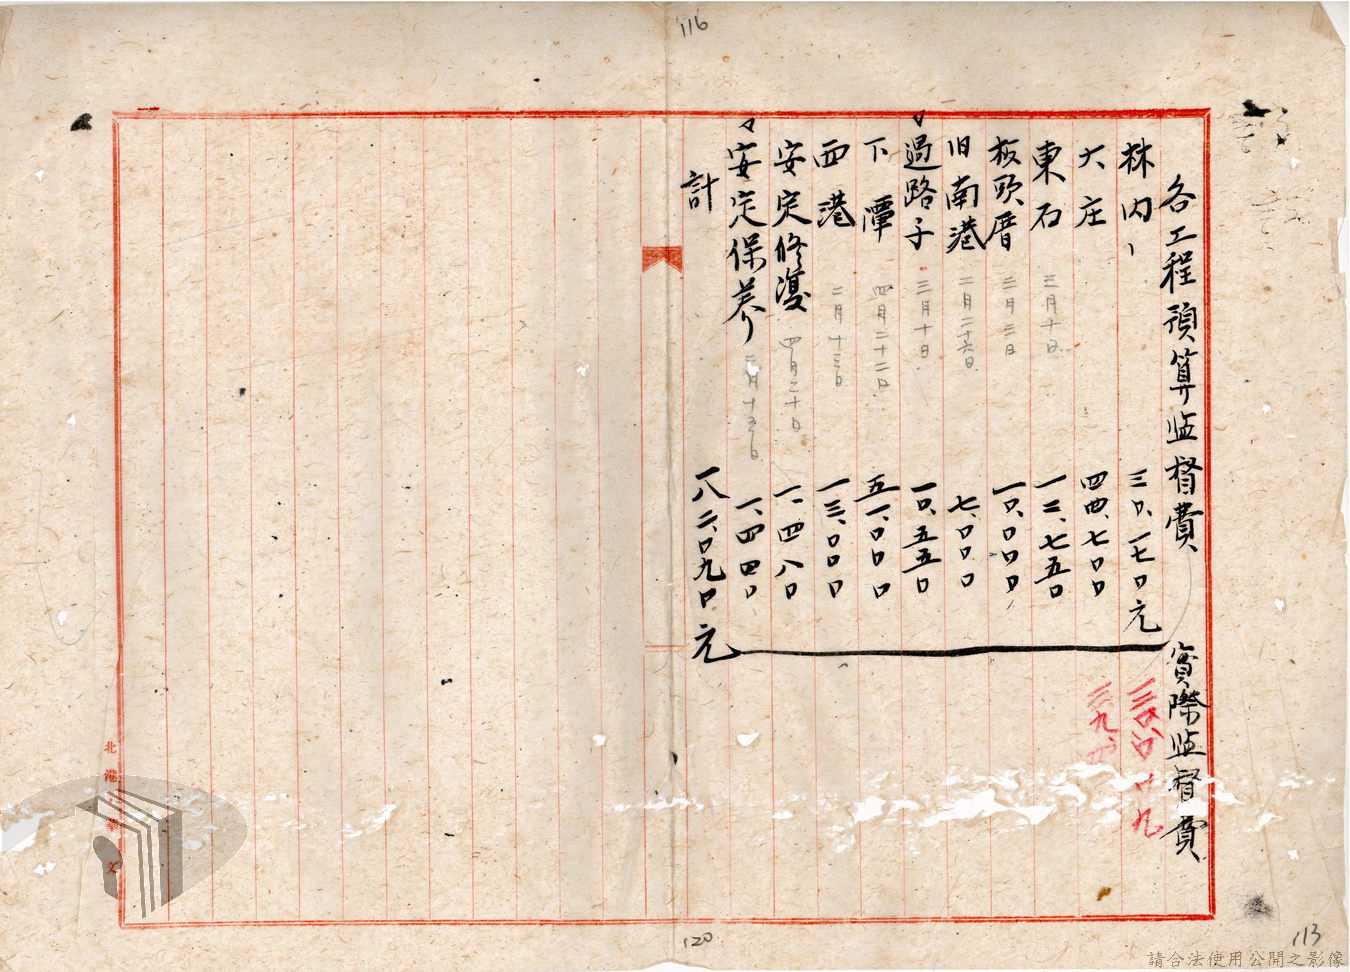 116
各工程預算监督費 實際监督費
林内、 三〇、一七〇元
大庄 四四、七〇〇
東石 三月十日 一二、七五〇
板頭厝 三月三日 一〇、〇〇〇
旧南港 二月二十六日 七、〇〇〇
過路子 三月十日 一〇、五五〇
下潭 四月二十二日 五一、〇〇〇
西港 二月十三日 一三、〇〇〇
安定修復 四月二十日 一、四八〇
安定保养 二月十五日 一、四四〇
計 一八二、〇九〇元
北港
120
113
請合法使用公開之影像